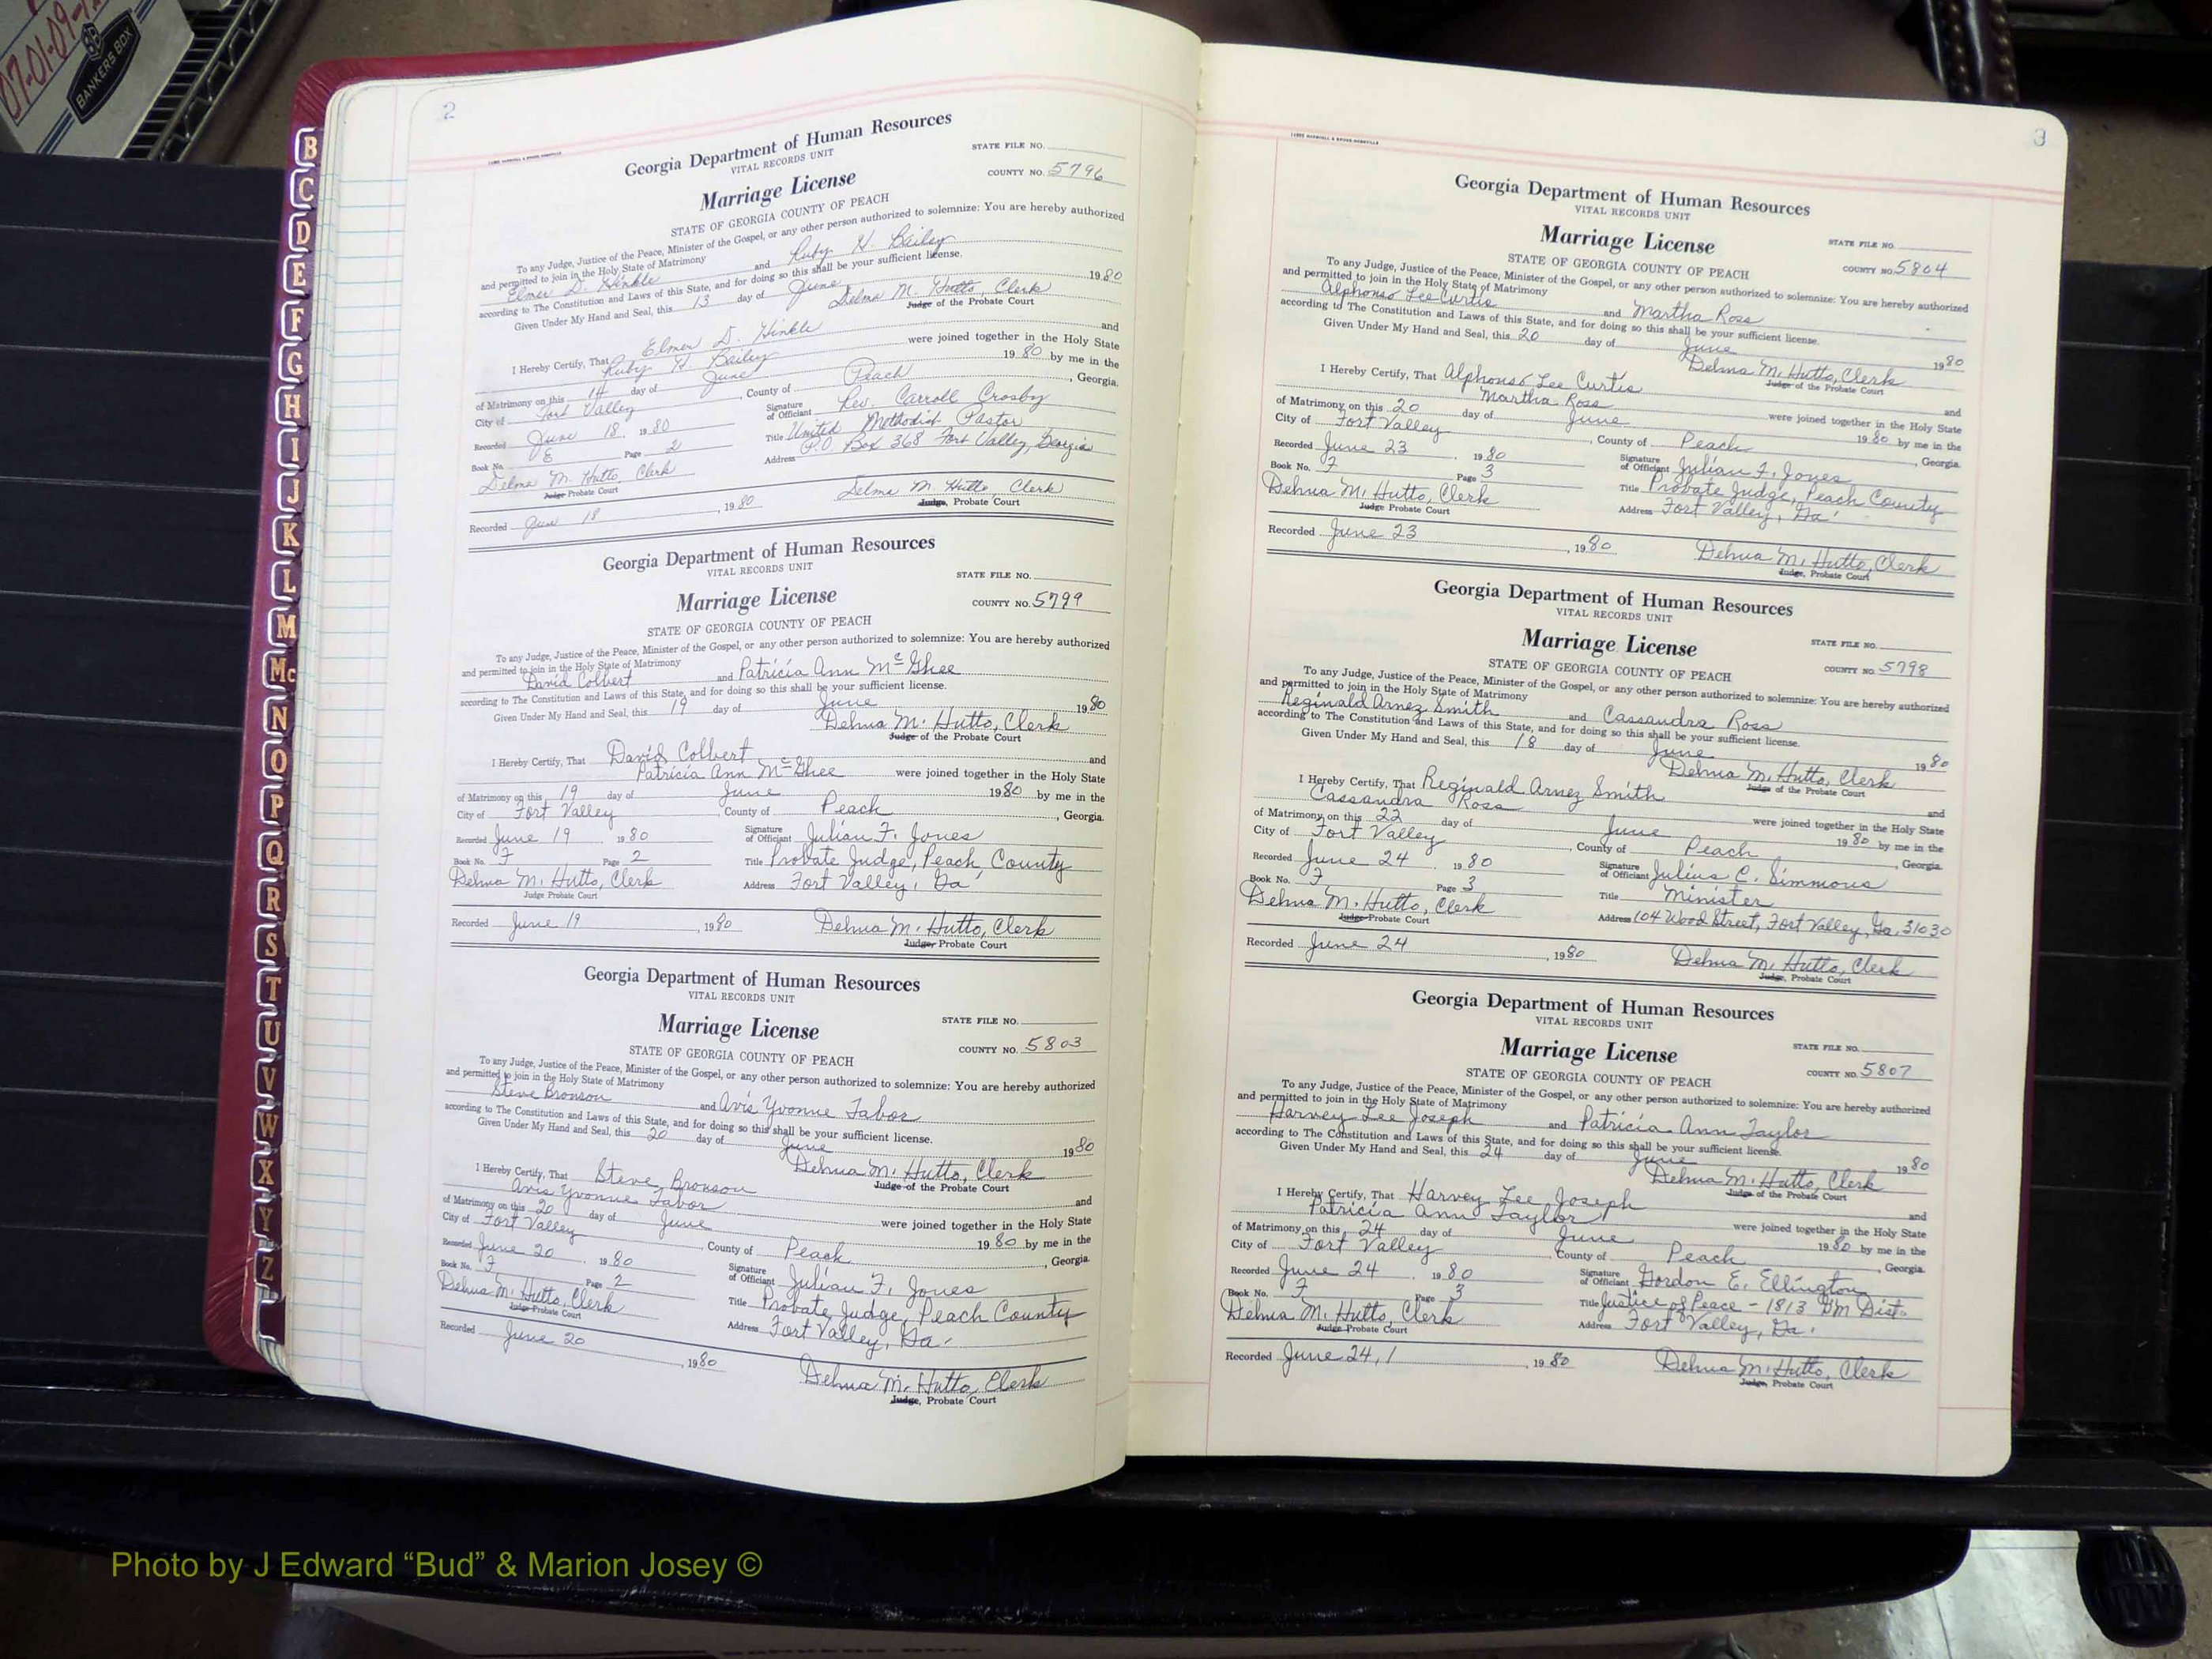 07-01-09-1
BANKERS BOX
B
C
D
E
F
G
H
I
J
K
L
M
Mc
N
O
P
Q
R
S
T
U
V
W
X
Y
Z
2
Georgia Department of Human Resources
VITAL RECORDS UNIT
STATE FILE NO.
Marriage License
COUNTY NO. 5796
STATE OF GEORGIA COUNTY OF PEACH
To any Judge, Justice of the Peace, Minister of the Gospel, or any other person authorized to solemnize: You are hereby authorized
and permitted to join in the Holy State of Matrimony
Elmer D. Hinkle and Ruby H. Bailey
according to The Constitution and Laws of this State, and for doing so this shall be your sufficient license.
Given Under My Hand and Seal, this 13 day of June 1980
Delma M. Hutto, Clerk
Judge of the Probate Court
I Hereby Certify, That Elmer D. Hinkle and
Ruby H. Bailey were joined together in the Holy State
of Matrimony on this 14 day of June 1980 by me in the
City of Fort Valley, County of Peach, Georgia.
Recorded June 18, 1980
Signature of Officiant Rev. Carroll Crosby
Book No. E Page 2
Title United Methodist Pastor
Delma M. Hutto Clerk
Address P.O. Box 368 Fort Valley, Georgia
Judge Probate Court
Recorded June 18, 1980
Delma M. Hutto, Clerk
Judge, Probate Court
Georgia Department of Human Resources
VITAL RECORDS UNIT
STATE FILE NO.
Marriage License
COUNTY NO. 5799
STATE OF GEORGIA COUNTY OF PEACH
To any Judge, Justice of the Peace, Minister of the Gospel, or any other person authorized to solemnize: You are hereby authorized
and permitted to join in the Holy State of Matrimony
David Colbert and Patricia Ann McGhee
according to The Constitution and Laws of this State, and for doing so this shall be your sufficient license.
Given Under My Hand and Seal, this 19 day of June 1980
Delma M. Hutto, Clerk
Judge of the Probate Court
I Hereby Certify, That David Colbert and
Patricia Ann McGhee were joined together in the Holy State
of Matrimony on this 19 day of June 1980 by me in the
City of Fort Valley County of Peach, Georgia.
Recorded June 19 1980
Signature of Officiant Julian F. Jones
Book No. F Page 2
Title Probate Judge, Peach County
Delma M. Hutto, Clerk
Address Fort Valley, Ga
Judge Probate Court
Recorded June 19, 1980
Delma M. Hutto, Clerk
Judge, Probate Court
Georgia Department of Human Resources
VITAL RECORDS UNIT
STATE FILE NO.
Marriage License
COUNTY NO. 5803
STATE OF GEORGIA COUNTY OF PEACH
To any Judge, Justice of the Peace, Minister of the Gospel, or any other person authorized to solemnize: You are hereby authorized
and permitted to join in the Holy State of Matrimony
Steve Bronson and Avis Yvonne Tabor
according to The Constitution and Laws of this State, and for doing so this shall be your sufficient license.
Given Under My Hand and Seal, this 20 day of June 1980
Delma M. Hutto, Clerk
Judge of the Probate Court
I Hereby Certify, That Steve Bronson and
Avis Yvonne Tabor were joined together in the Holy State
of Matrimony on this 20 day of June 1980 by me in the
City of Fort Valley, County of Peach, Georgia.
Recorded June 20, 1980
Signature of Officiant Julian F. Jones
Book No. F Page 2
Title Probate Judge, Peach County
Delma M. Hutto, Clerk
Address Fort Valley, Ga.
Judge Probate Court
Recorded June 20, 1980
Delma M. Hutto, Clerk
Judge, Probate Court
3
Georgia Department of Human Resources
VITAL RECORDS UNIT
STATE FILE NO.
Marriage License
COUNTY NO. 5804
STATE OF GEORGIA COUNTY OF PEACH
To any Judge, Justice of the Peace, Minister of the Gospel, or any other person authorized to solemnize: You are hereby authorized
and permitted to join in the Holy State of Matrimony
Alphonso Lee Curtis and Martha Ross
according to The Constitution and Laws of this State, and for doing so this shall be your sufficient license.
Given Under My Hand and Seal, this 20 day of June 1980
Delma M. Hutto, Clerk
Judge of the Probate Court
I Hereby Certify, That Alphonso Lee Curtis and
Martha Ross were joined together in the Holy State
of Matrimony on this 20 day of June 1980 by me in the
City of Fort Valley, County of Peach, Georgia.
Recorded June 23, 1980
Signature of Officiant Julian F. Jones
Book No. F Page 3
Title Probate Judge, Peach County
Delma M. Hutto, Clerk
Address Fort Valley, Ga.
Judge Probate Court
Recorded June 23, 1980
Delma M. Hutto, Clerk
Judge, Probate Court
Georgia Department of Human Resources
VITAL RECORDS UNIT
STATE FILE NO.
Marriage License
COUNTY NO. 5798
STATE OF GEORGIA COUNTY OF PEACH
To any Judge, Justice of the Peace, Minister of the Gospel, or any other person authorized to solemnize: You are hereby authorized
and permitted to join in the Holy State of Matrimony
Reginald Arnez Smith and Cassandra Ross
according to The Constitution and Laws of this State, and for doing so this shall be your sufficient license.
Given Under My Hand and Seal, this 18 day of June 1980
Delma M. Hutto, Clerk
Judge of the Probate Court
I Hereby Certify, That Reginald Arnez Smith and
Cassandra Ross were joined together in the Holy State
of Matrimony on this 22 day of June 1980 by me in the
City of Fort Valley, County of Peach, Georgia.
Recorded June 24, 1980
Signature of Officiant Julius C. Simmons
Book No. F Page 3
Title Minister
Delma M. Hutto, Clerk
Address 104 Wood Street, Fort Valley, Ga. 31030
Judge Probate Court
Recorded June 24, 1980
Delma M. Hutto, Clerk
Judge, Probate Court
Georgia Department of Human Resources
VITAL RECORDS UNIT
STATE FILE NO.
Marriage License
COUNTY NO. 5807
STATE OF GEORGIA COUNTY OF PEACH
To any Judge, Justice of the Peace, Minister of the Gospel, or any other person authorized to solemnize: You are hereby authorized
and permitted to join in the Holy State of Matrimony
Harvey Lee Joseph and Patricia Ann Taylor
according to The Constitution and Laws of this State, and for doing so this shall be your sufficient license.
Given Under My Hand and Seal, this 24 day of June 1980
Delma M. Hutto, Clerk
Judge of the Probate Court
I Hereby Certify, That Harvey Lee Joseph and
Patricia Ann Taylor were joined together in the Holy State
of Matrimony on this 24 day of June 1980 by me in the
City of Fort Valley, County of Peach, Georgia.
Recorded June 24, 1980
Signature of Officiant Gordon E. Ellington
Book No. F Page 3
Title Justice of Peace - 1813 GM Dist.
Delma M. Hutto, Clerk
Address Fort Valley, Ga.
Judge Probate Court
Recorded June 24, 1, 1980
Delma M. Hutto, Clerk
Judge, Probate Court
Photo by J Edward “Bud” & Marion Josey ©